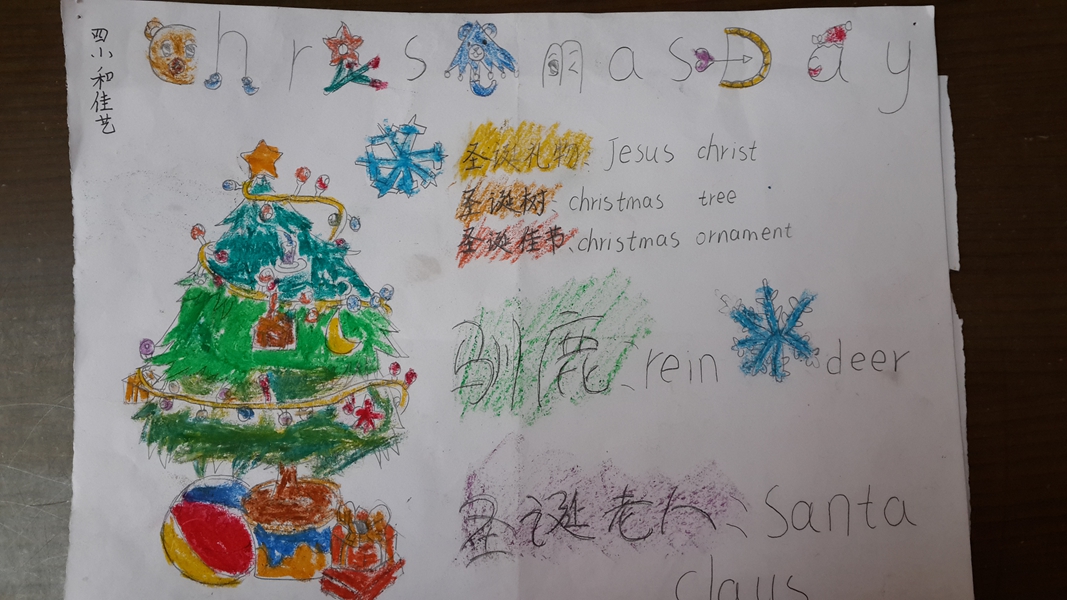 Christmas Day
四小 和佳艺
圣诞礼物、Jesus christ
圣诞树、christmas tree
圣诞佳节、christmas ornament
驯鹿、rein deer
圣诞老人、Santa
claus